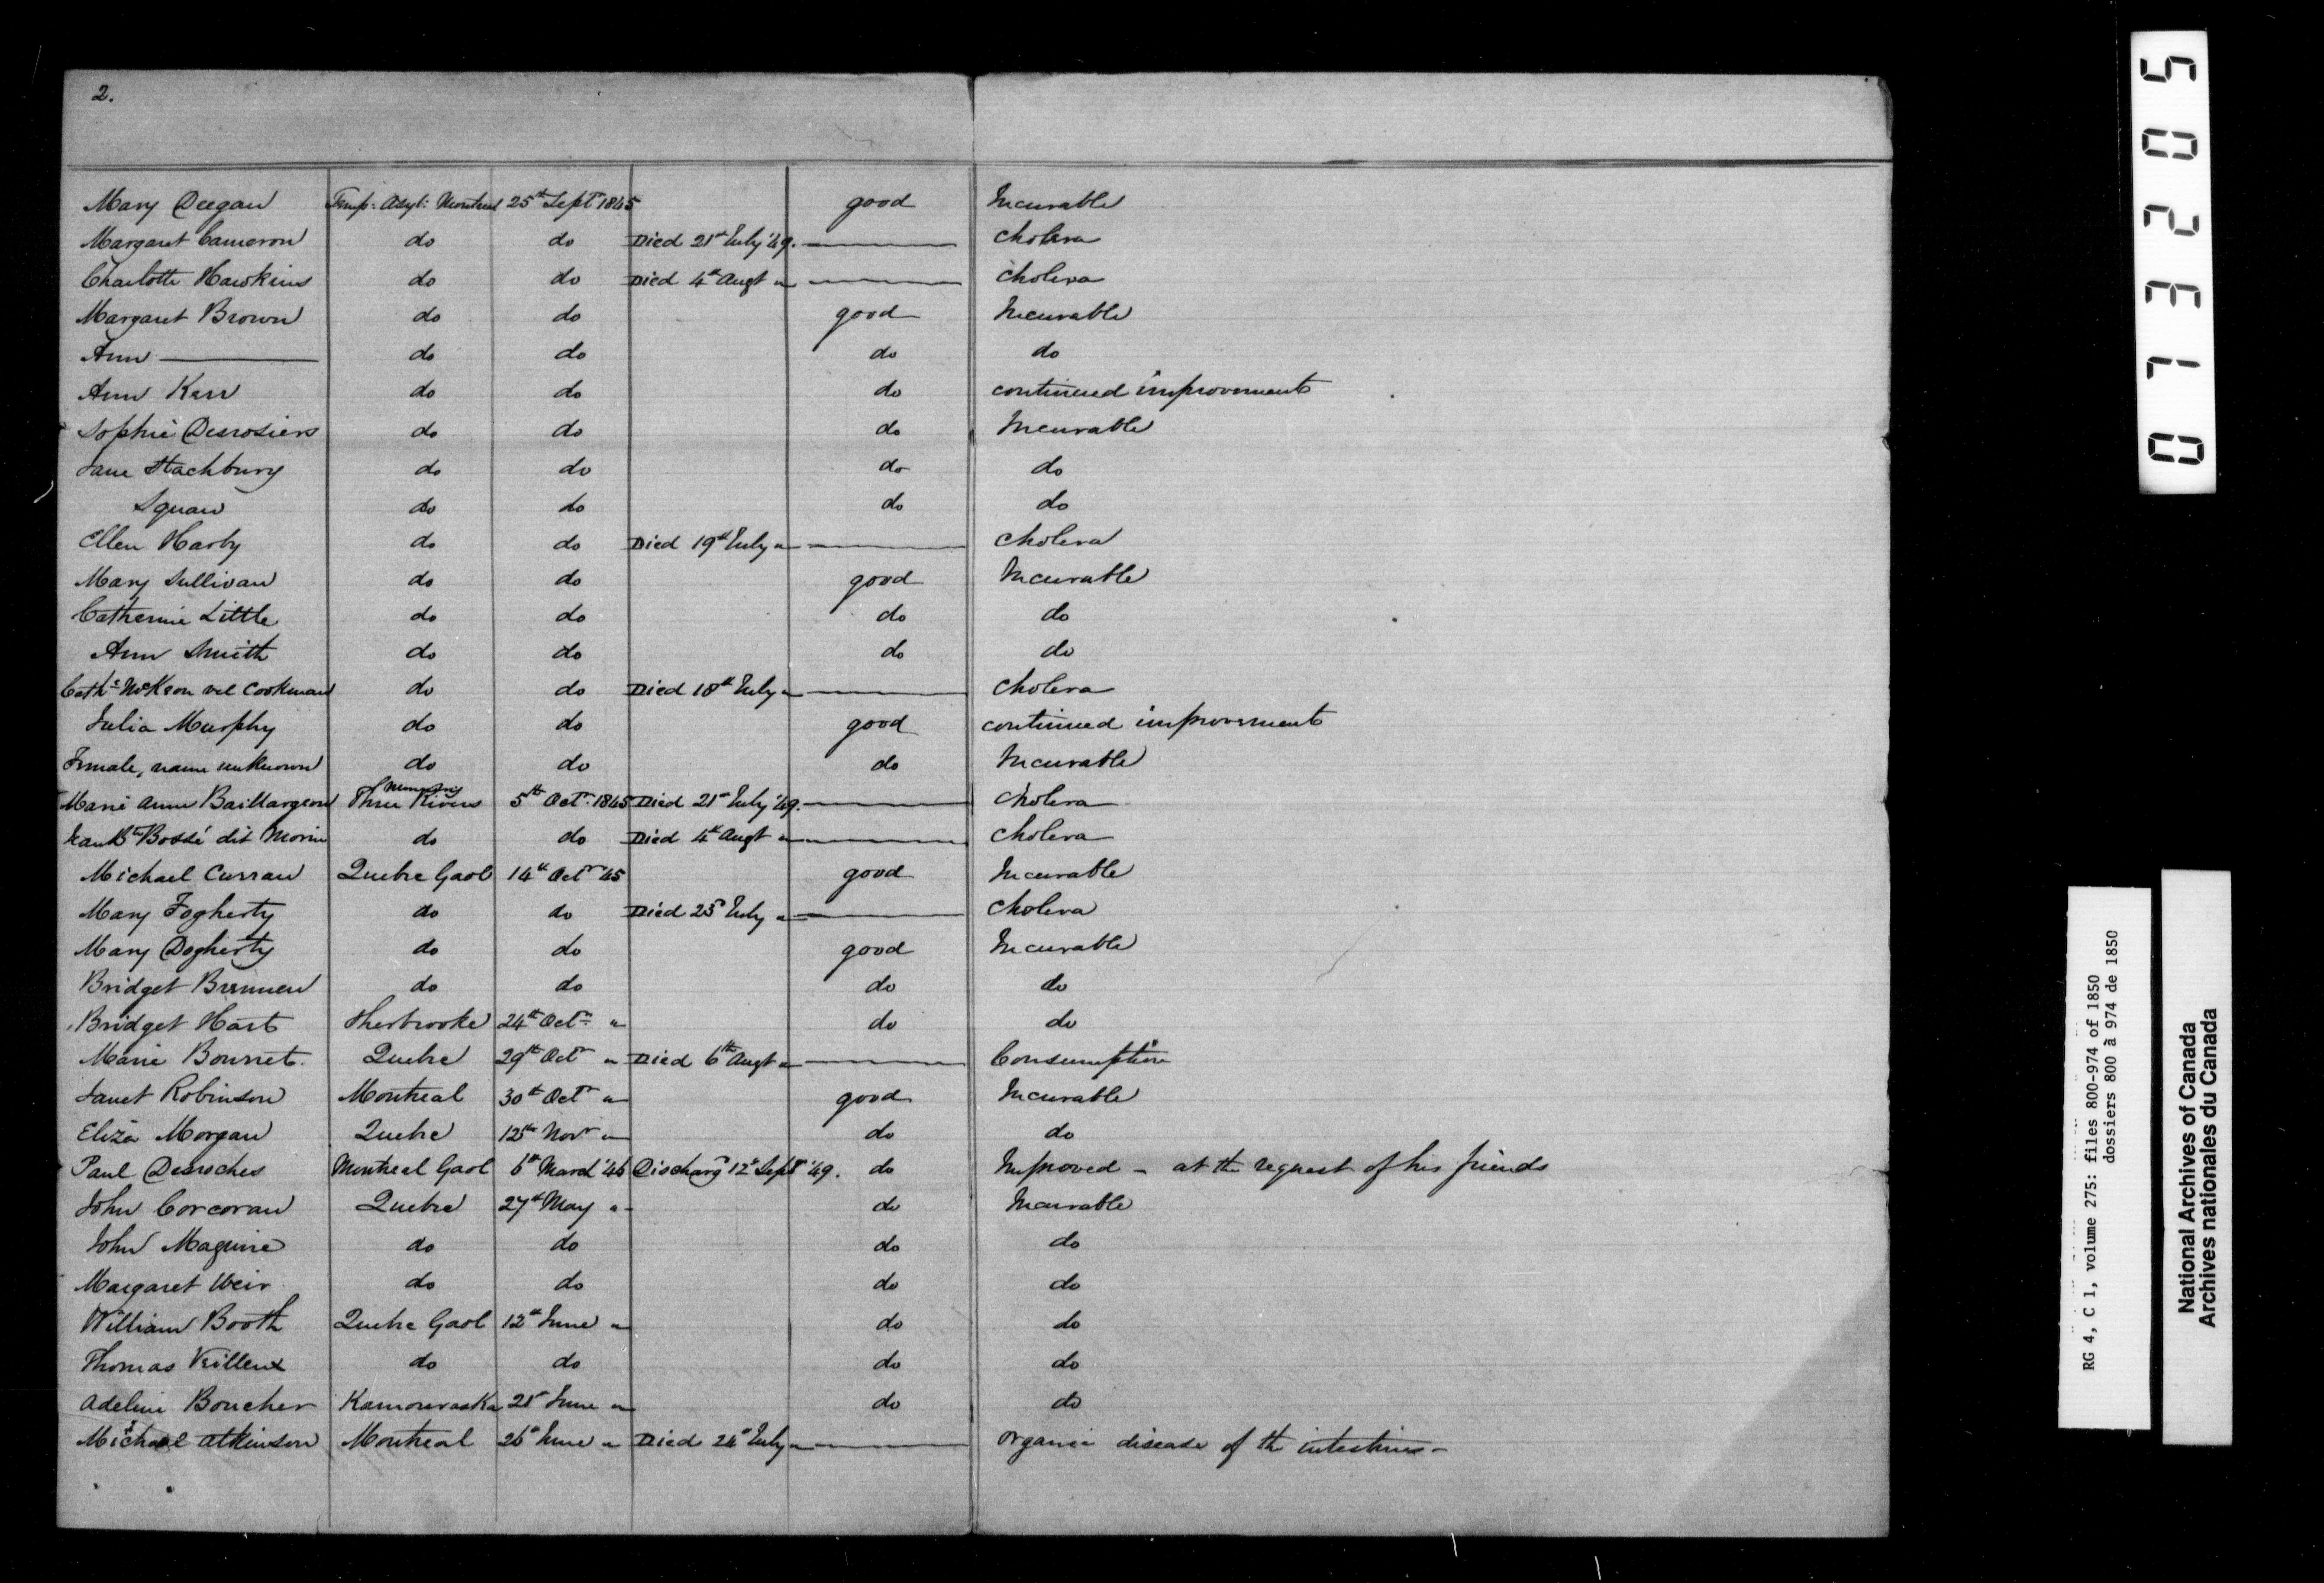 2.
Mary Deegan Temp: Asyl: Montreal 25th Sept 1845 good Incurable
Margaret Cameron do do Died 21st July '49. cholera
Charlotte Hawkins do do Died 4th Augt " cholera
Margaret Brown do do good Incurable
Ann do do do do
Ann Kerr do do do continued improvement
Sophie Desrosiers do do do Incurable
Jane Stachbury do do do do
Squaw do do do do
Ellen Harby do do Died 19th July " cholera
Mary Sullivan do do good Incurable
Catherine Little do do do do
Ann Smith do do do do
Cathe McKeon vel Cookman do do Died 18th July " cholera
Julia Murphy do do good continued improvement
Female, name unknown do do do Incurable
Marie Anne Baillargeon Three Rivers 5th Octr 1845 Died 21st July '49. cholera
Jean Bte Bossé dit Morin do do Died 4th Augt " cholera
Michael Curran Quebec Gaol 14th Octr '45 good Incurable
Mary Fogherty do do Died 23d July " cholera
Mary Dogherty do do good Incurable
Bridget Brennen do do do do
Bridget Hart Sherbrooke 24th Octr " do do
Marie Bonnet. Quebec 29th Octr " Died 6th Augt " Consumption
Janet Robinson Montreal 30th Octr " good Incurable
Eliza Morgan Quebec 12th Novr " do do
Paul Desroches Montreal Gaol 6th March '46 Discharg'd 12th Sept '49. do Improved - at the request of his friends
John Corcoran Quebec 27th May " do Incurable
John Maguire do do do do
Margaret Weir do do do do
William Booth Quebec Gaol 12th June " do do
Thomas Veilleux do do do do
Adeline Boucher Kamouraska 21st June " do do
Michael Atkinson Montreal 26th June " Died 24th July " organic disease of the intestines -
0713205
RG 4, C 1, volume 275: files 800-974 of 1850
dossiers 800 à 974 de 1850
National Archives of Canada
Archives nationales du Canada